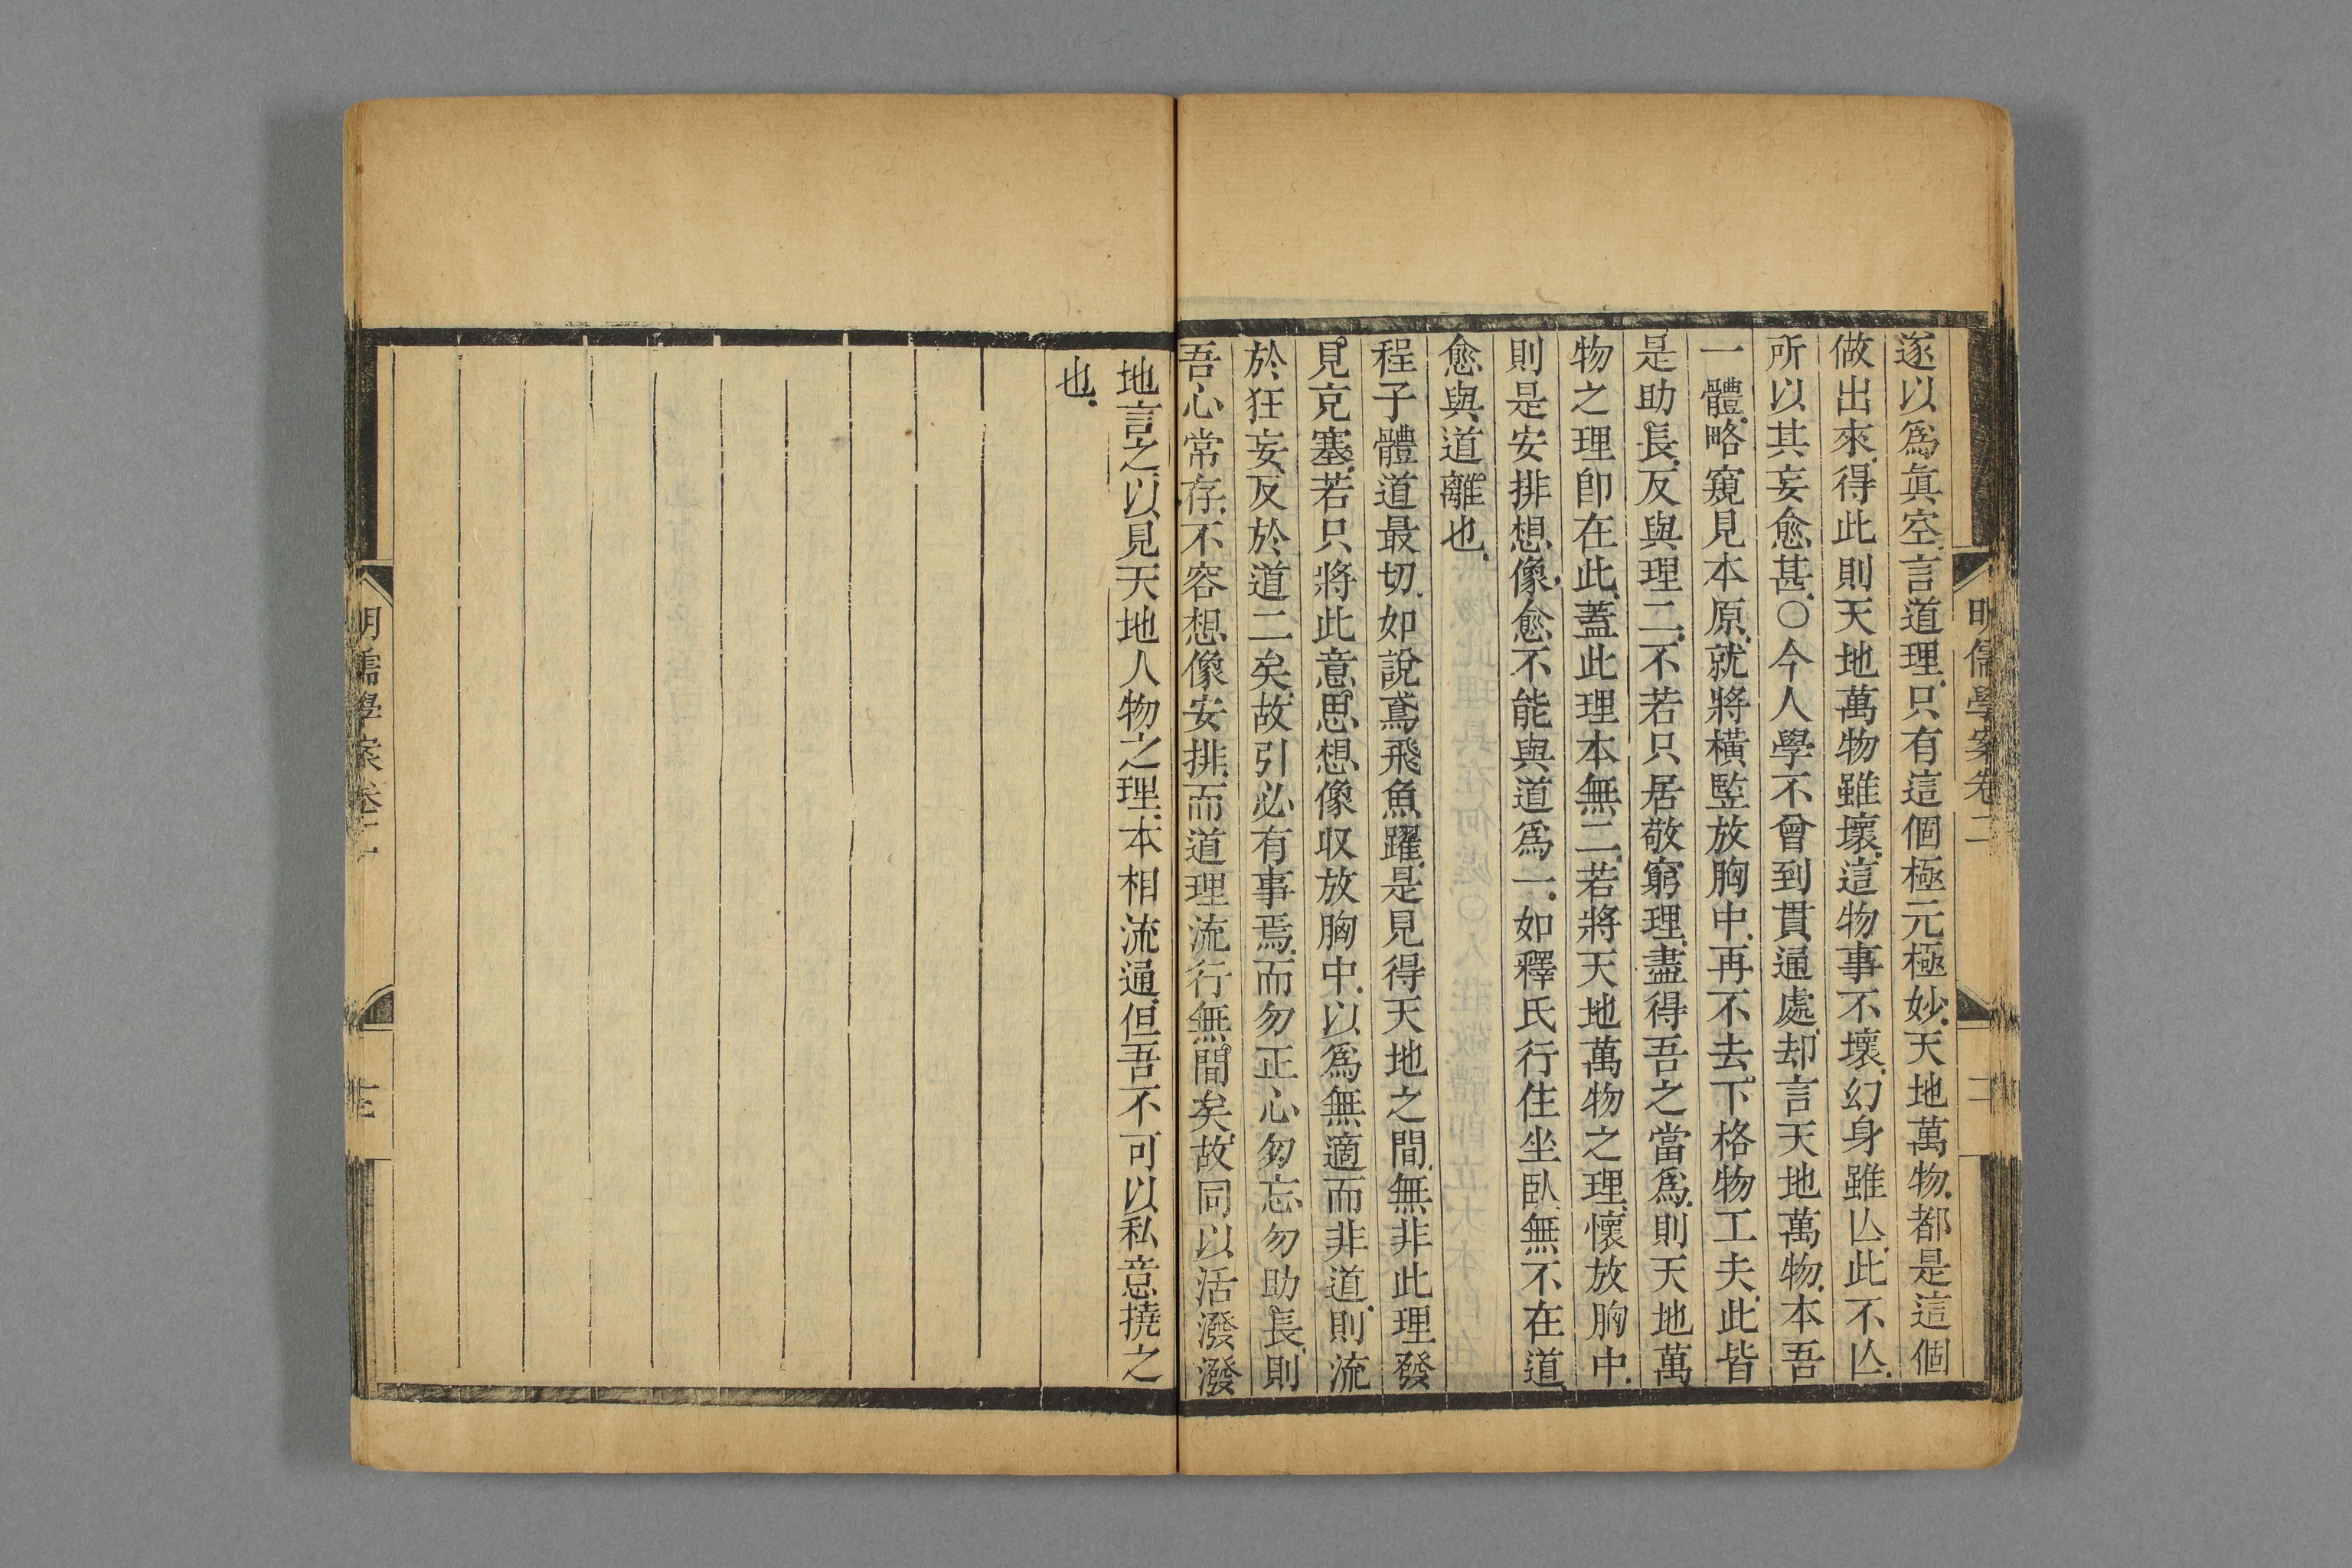 明儒學案卷二
遂以爲眞空言道理只有這個極元極妙天地萬物都是這個
做出來得此則天地萬物雖壞這物事不壞幻身雖亾此不亾
所以其妄愈甚○今人學不曾到貫通處却言天地萬物本吾
一體略窺見本原就將橫竪放胸中再不去下格物工夫此皆
是助長反與理二不若只居敬窮理盡得吾之當爲則天地萬
物之理卽在此蓋此理本無二若將天地萬物之理懷放胸中
則是安排想像愈不能與道爲一如釋氏行住坐臥無不在道
愈與道離也
程子體道最切如說鳶飛魚躍是見得天地之間無非此理發
見充塞若只將此意思想像收放胸中以爲無適而非道則流
於狂妄反於道二矣故引必有事焉而勿正心勿忘勿助長則
吾心常存不容想像安排而道理流行無間矣故同以活潑潑
地言之以見天地人物之理本相流通但吾不可以私意撓之
也
明儒學案卷二